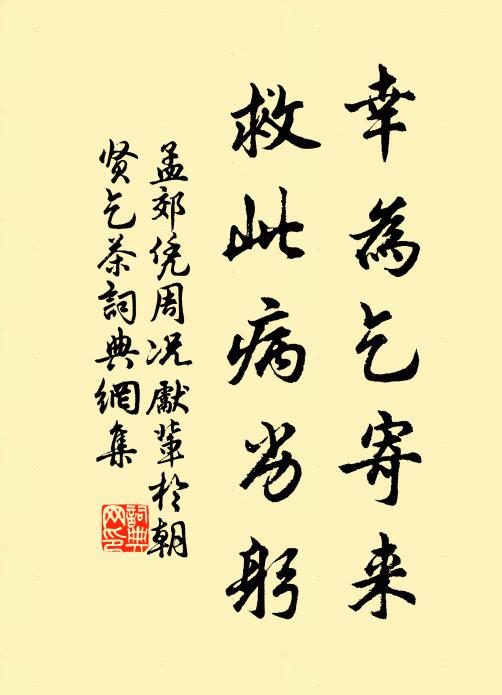 幸為乞寄来
救此病劣躬
孟郊凭周况獻軰於朝
贤乞茶詞典網集
詞典网印